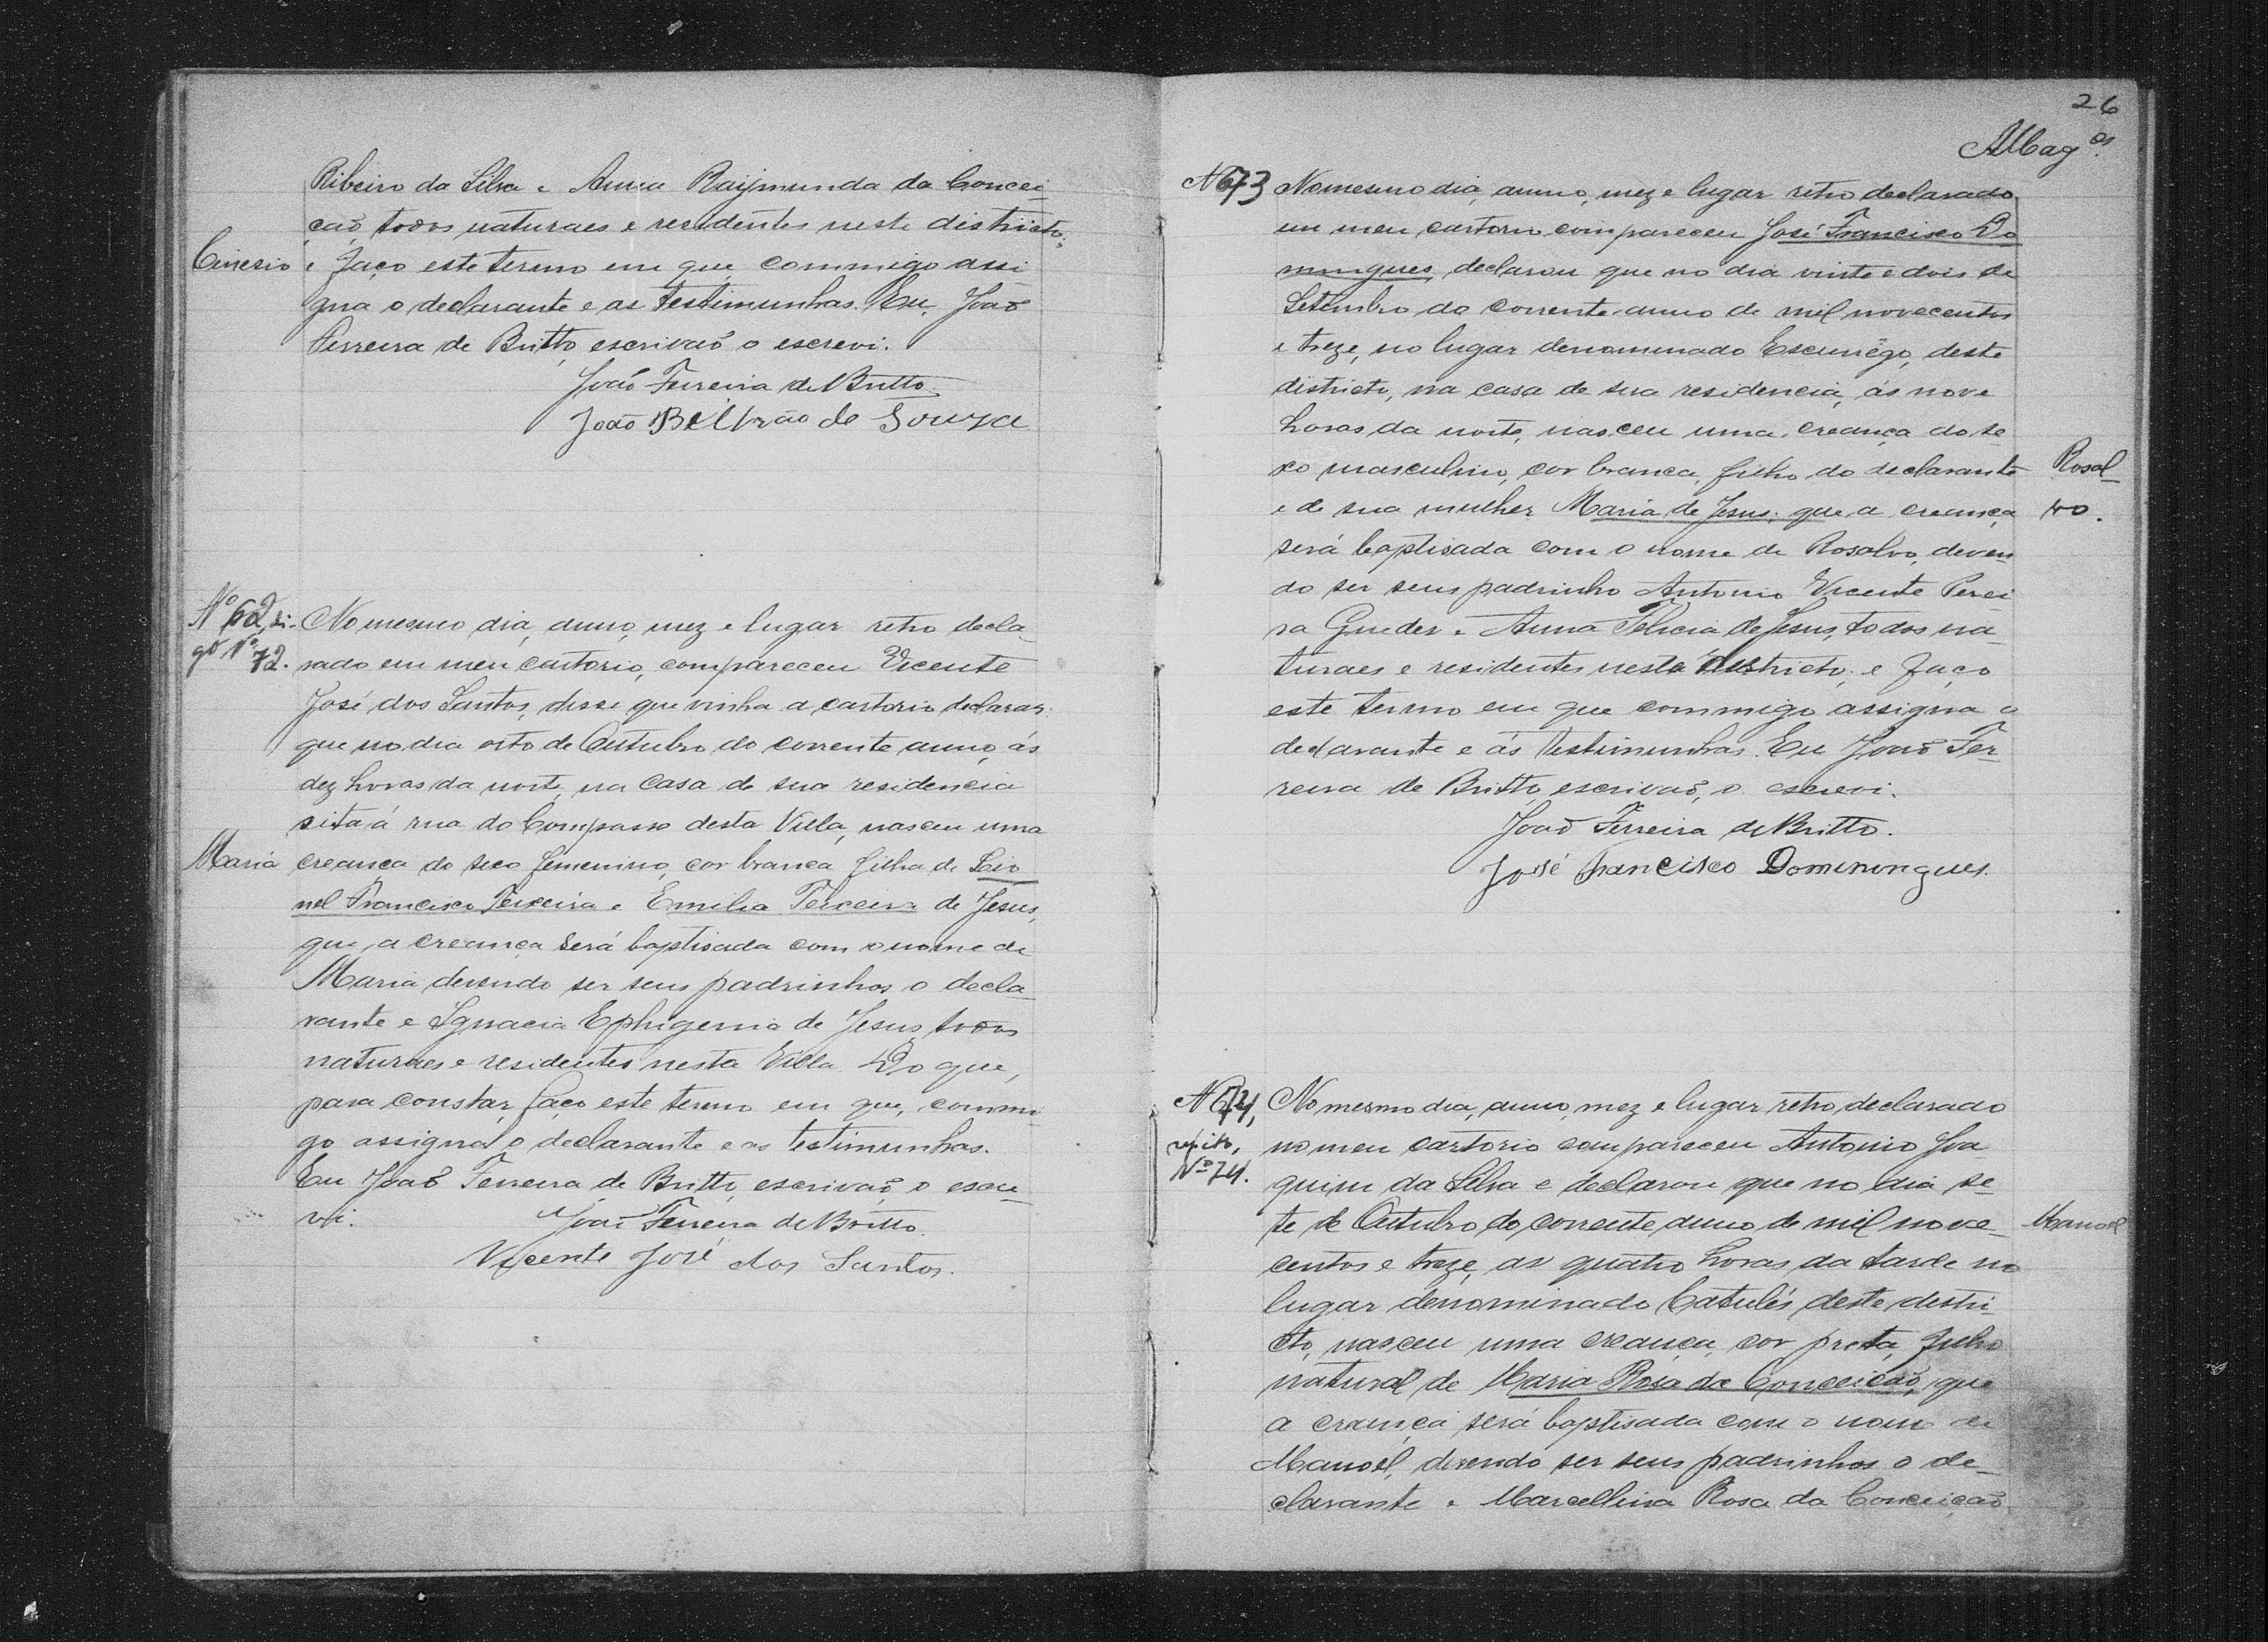 Ribeiro da Silva e Anna Raijmunda da Concei-
ção, todos naturaes e residentes neste districto;
Cinesio
e faço este termo em que commigo assi
gna o declarante e as testimunhas. Eu, João
Ferreira de Britto escrivaõ o escrevi.
João Ferreira de Britto.
João Beltrão de Souza
Nº 62, di-
go Nº
72.
No mesmo dia, anno, mez e lugar retro decla-
rado em meu cartorio, compareceu Vicente
José dos Santos, disse que vinha a cartorio declarar
que no dia oito de Outubro do corrente anno, ás
dez horas da noite, na casa de sua residencia
sita á rua do Compasso desta Villa, nasceu uma
Maria
creança do sexo femenino, cor branca filha de Leo
nel Francisco Teixeira e Emilia Teixeira de Jesus,
que a creança será baptisada com o nome de
Maria devendo ser seus padrinhos o decla-
rante e Ignacia Ephigenia de Jesus, todos
naturaes e residentes nesta Villa. Do que,
para constar, faço este termo em que, commi
go assigna o declarante e as testimunhas.
Eu João Ferreira de Britto, escrivaõ, o escre-
vi.
João Ferreira de Britto.
Vicente José dos Santos.
26
Mag.es
Nº 73
No mesmo dia, anno, mez e lugar retro declarado
em meu cartorio compareceu José Francisco Do
mingues, declarou que no dia vinte e dois de
Setembro do corrente anno de mil novecentos
e treze, no lugar denominado deste
districto, na casa de sua residencia, ás nove
horas da noite, nasceu uma creança do se
xo masculino, cor branca, filho do declarante
Rosal-
e de sua mulher Maria de Jesus; que a creança
vo.
será baptisada com o nome de Rosalvo, deven
do ser seus padrinho Antonio Vicente Perei
ra Guedes e Anna Felicia de Jesus, todos na
turaes e residentes nesta districto; e faço
este termo em que commigo assigna o
declarante e ás testimunhas. Eu João Fer-
reira de Britto, escrivaõ, o escrevi.
João Ferreira de Britto.
José Francisco Domenongues.
Nº 74,
repito,
Nº 74.
No mesmo dia, anno, mez e lugar retro declarado
no meu cartorio compareceu Antonio Joa
quim da Silva e declarou que no dia se-
te de Outubro do corrente anno de mil nove-
Manoel
centos e treze, as quatro horas da tarde no
lugar denominado Catulés deste distri-
cto, nasceu uma creança, cor preta, filho
natural de Maria Rosa da Conceição, que
a creança será baptisada com o nome de
Manoel, devendo ser seus padrinhos o de-
clarante e Marcellina Rosa da Conceição,